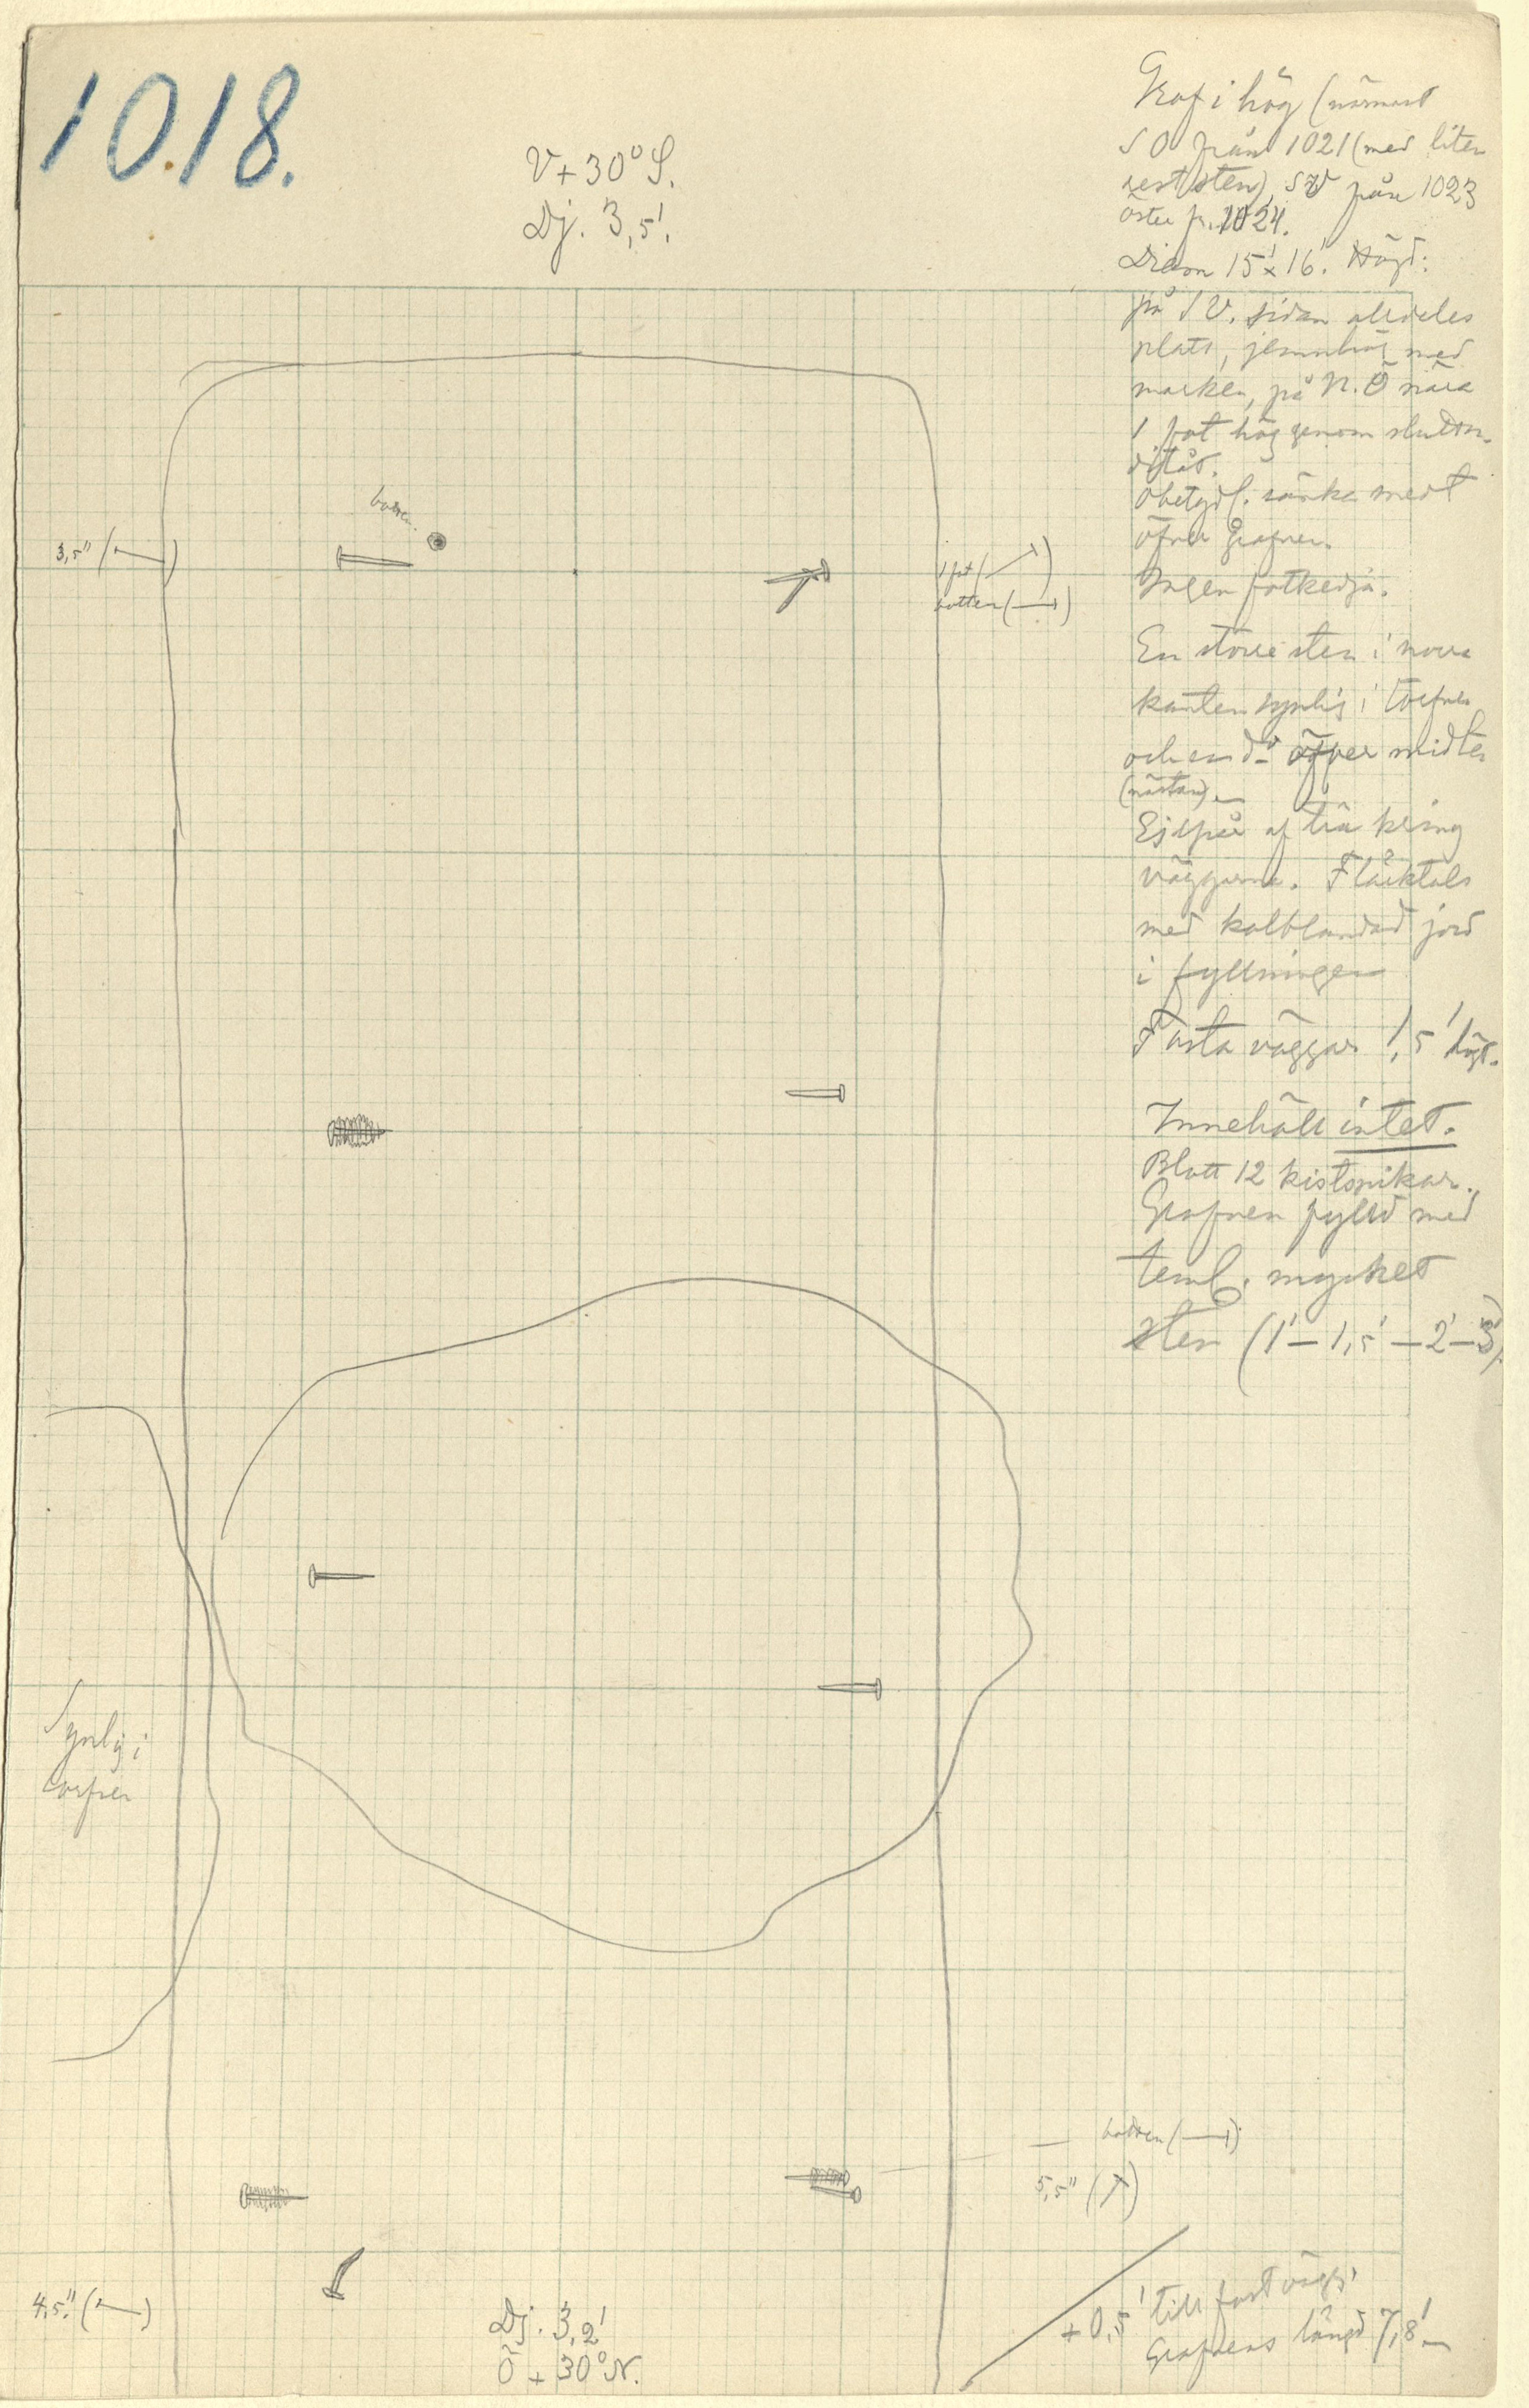 1018.
V+30° S.
Dj. 3,5'.
Graf i hög (närmast
SO från 1021 (med liten
rest sten), SV från 1023
öster fr. 1024.
Diam 15' x 16'. Höjd:
på SV. sidan alldeles
platt, jemnhög med
marken, på N.Ö nära
1 fot hög genom slutt
Obetydl. sänka med t
öfver grafven.
Ingen fotkedja.
En större sten i norra
kanten synlig i torfven
och en d:o öfver midten
(nästan).
Ej spår af trä kring
väggarna. Fläcktals
med kolblandad jord
i fyllningen
Fasta väggar 1,5' högt.
Innehåll intet.
Blott 12 kistspikar.
Grafven fylld med
teml. mycket
sten (1'–1,5'–2'–3')
botten.
3,5" ( )
1 fot ( )
botten ( )
Synlig i
torfven
botten ( )
5,5" ( )
4,5" ( )
Dj. 3,2'
Ö + 30° N.
+ 0,5' till fast vägg
Grafvens längd 7,8'